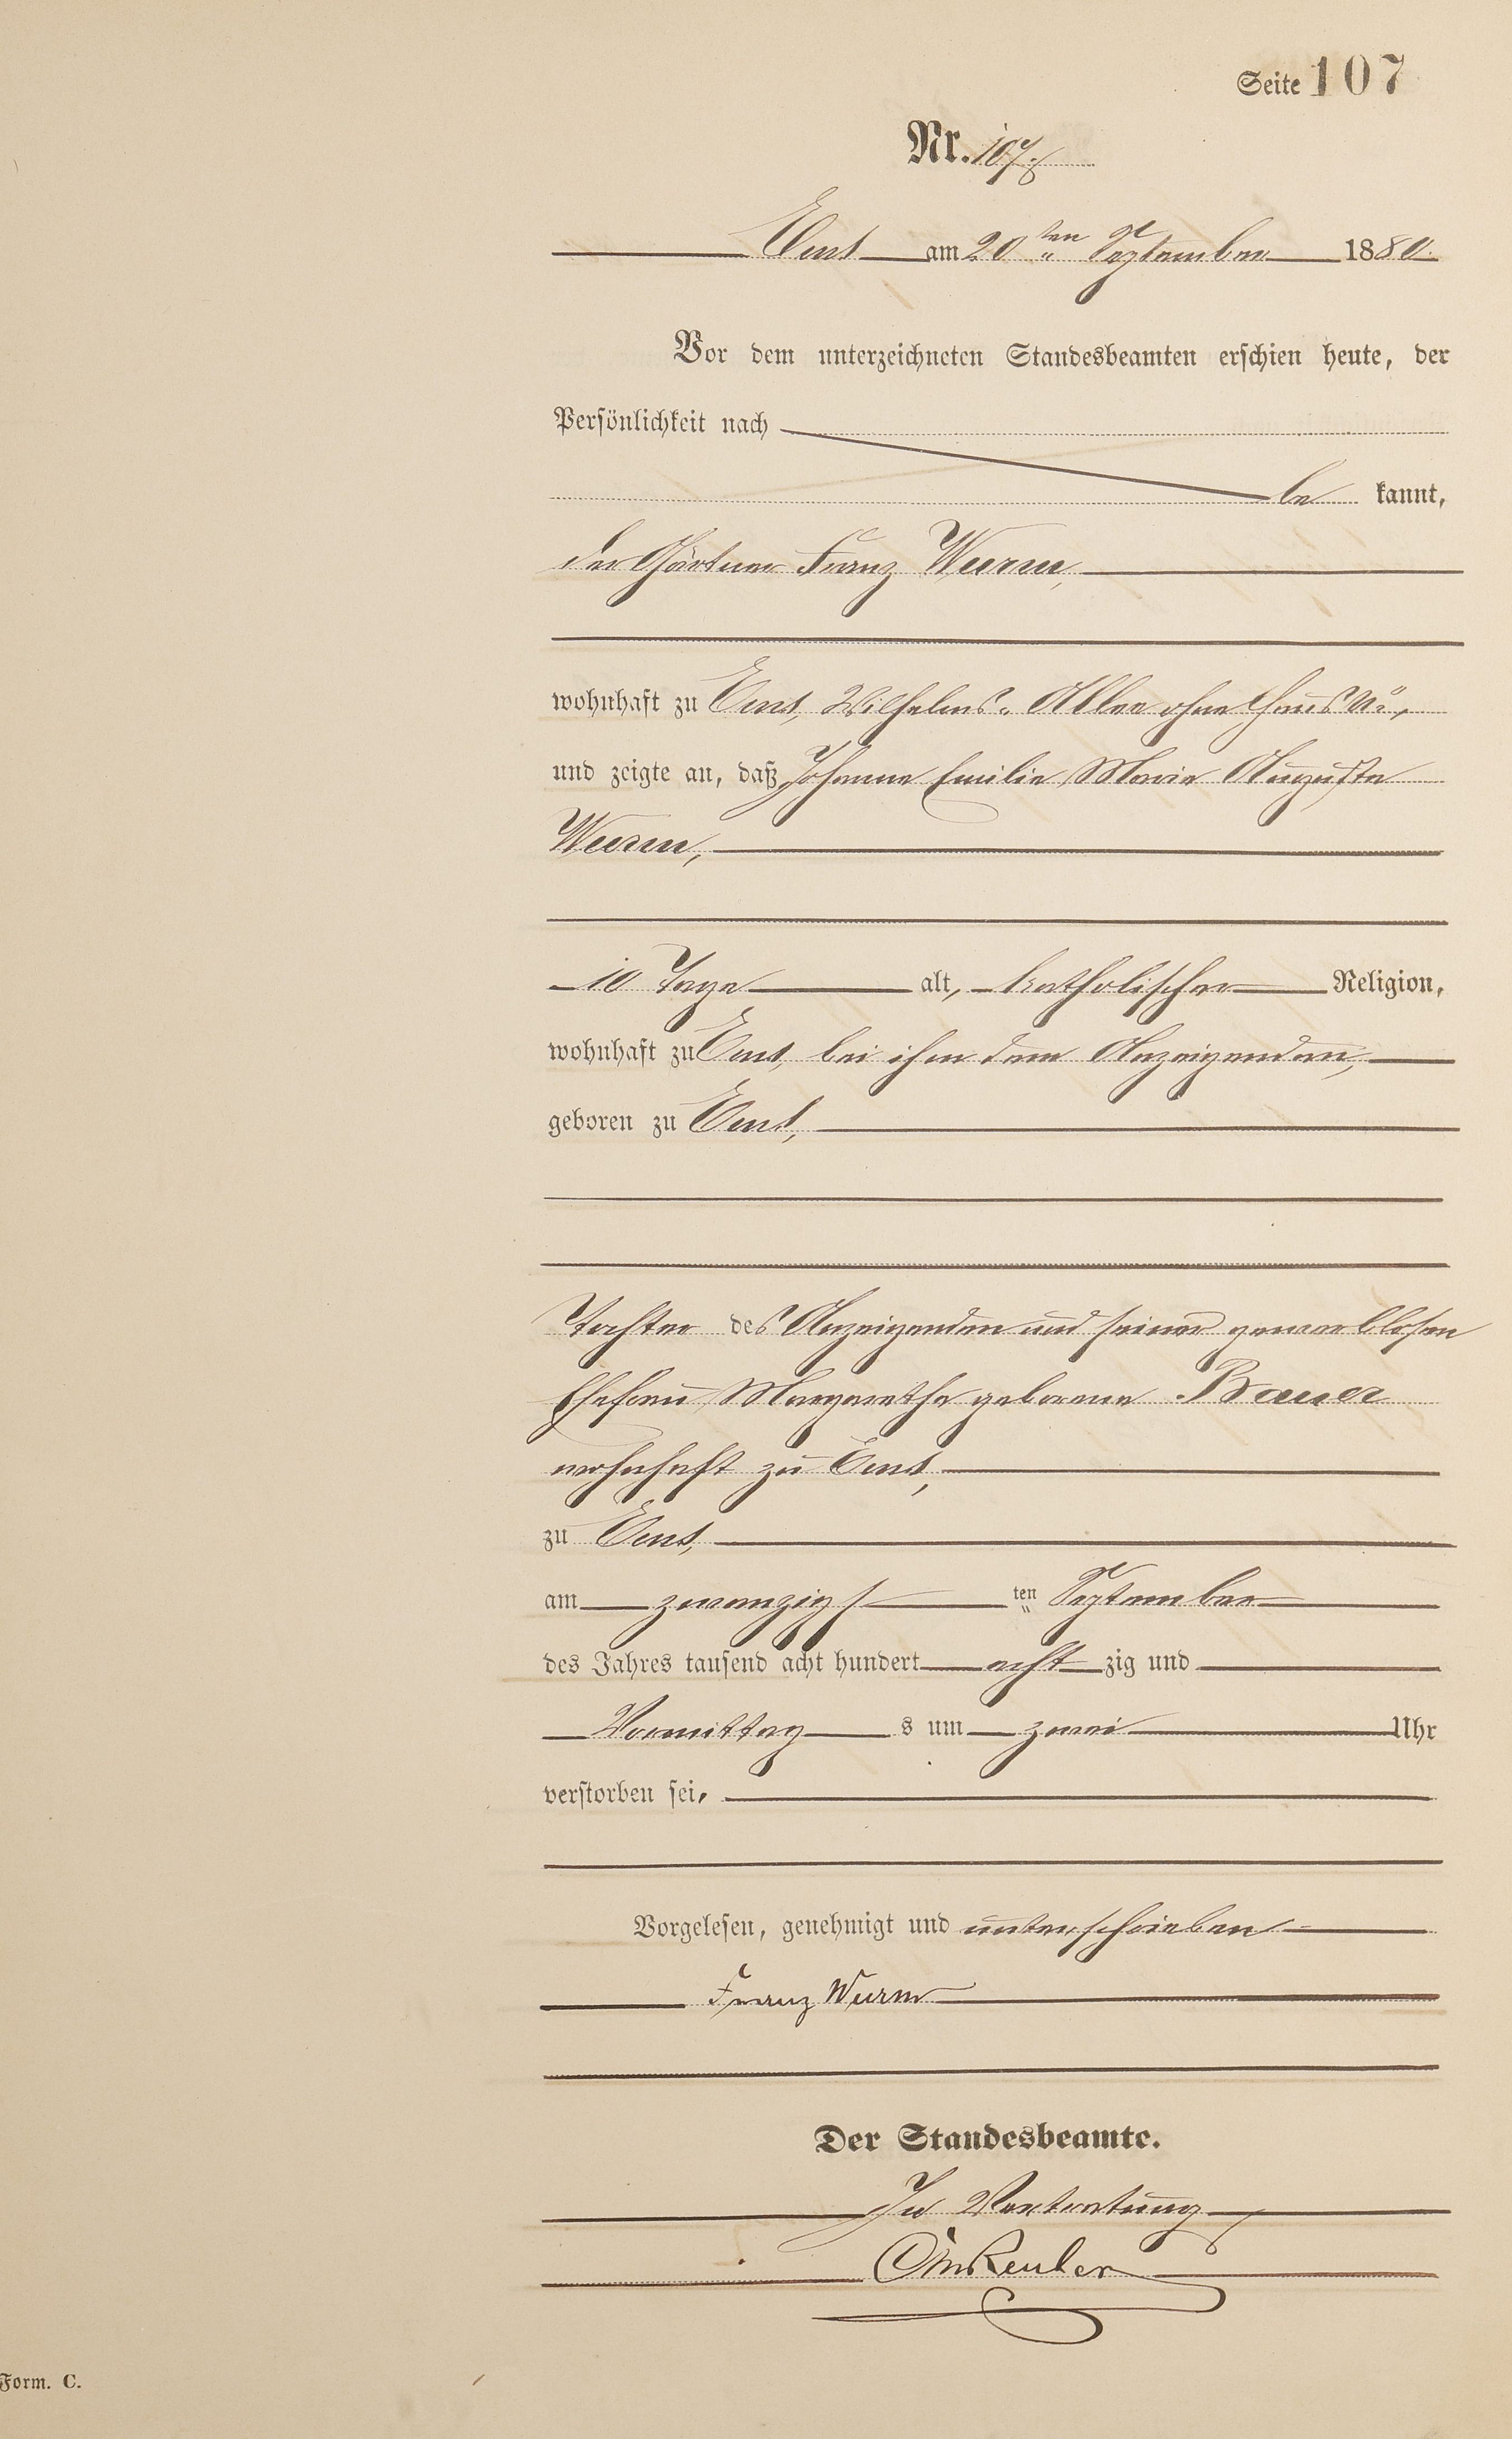 Seite 107
Nr. 107.
Ems am 20ten September 1880.
Vor dem unterzeichneten Standesbeamten erschien heute, der
Persönlichkeit nach
be kannt,
der Gärtner Franz Wurm,
wohnhaft zu Ems, Wilhelms-Allee ohne Haus No,
und zeigte an, daß Johanna Emilie Marie Auguste
Wurm,
10 Tage alt, katholischer Religion,
wohnhaft zu Ems, bei ihm dem Anzeigenden,
geboren zu Ems,
Tochter des Anzeigenden und seiner gewerblosen
Ehefrau Margaretha geborene Bauer
wohnhaft zu Ems,
zu Ems,
am zwanzigs ten September
des Jahres tausend acht hundert acht zig und
Vormittag s um zwei Uhr
verstorben sei,
Vorgelesen, genehmigt und unterschrieben
Franz Wurm
Der Standesbeamte.
In Vertretung
Form. C.